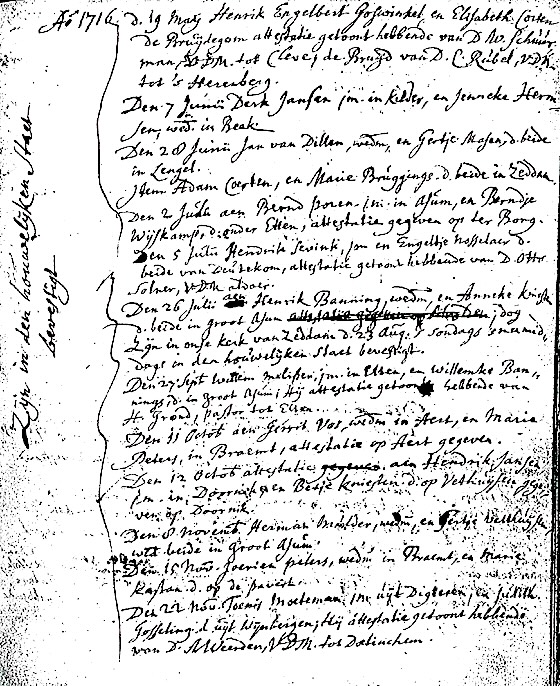 Aº 1716
Zijn in den houwelijken Staet
bevestigt
d. 19 Maij Henrik Engelbert Goswinkel, en Elisabeth Coeten
de Bruijdegom attestatie getoont hebbende van D. W. Schuur-
man, V.D.M. tot Cleve, de Bruijd van D. C. Rúbel, V.D.M.
tot 's Herenberg.
Den 7 Junii Derk Jansen jm. in Kilder, en Jenneke Herm-
sen, wed. in Beek
Den 28 Junii Jan van Dillen, wedm, en Gertje Masen, d. beide
in Lengel.
Item Adam Coerten, en Marie Brúggings. d. beide in Zeddam
Den 2 Julii aen Bernd jm. in Asúm, en Berndje
Wijskamp, d. onder Etten, attestatie gegeven op ter Borg.
Den 5 Julii Hendrik jm en Engeltje Nosselaer d.
beide van Deutekom, attestatie getoont hebbende van D. Otto
V.D.M. aldaer.
Den 26 Julii Henrik Banning, wedm, en Anneke
d. beide in groot Asúm attestatie gegeven op dog
zijn in onse kerk van Zeddam d. 23 Aug. sondags
dags in den houwelijken Staet bevestigt.
Den 27 Sept willem jm. in Etten, en willemke Ban-
nings, d. in groot Asúm; Hij attestatie getoont hebbende van
H. Grond, pastor tot Etten.
Den 11 Octob aen Gerrit Vos, wedm in Aert, en Marie
Peters, in Braemt, attestatie op Aert gegeven.
Den 12 Octob attestatie gegeven aen Hendrik Jansen
jm. in Doornik, en Beetje d. op Vethuijsen gege-
ven op Doornik.
Den 8 Novemb Herman Múlder, wedm, en Gertje Velthuijsen
wed. beide in groot Asúm.
Den 15 Nov. Joerrien peters, wedm in Braemt, en Marie
d. op de pavert.
Den 22 Nov. Toenis Moeteman, jm. uijt en Judith
Gosseling d. uijt Wijnbergen; Hij attestatie getoont hebbende
van D. A. Weerden, V.D.M. tot Dotinchem.